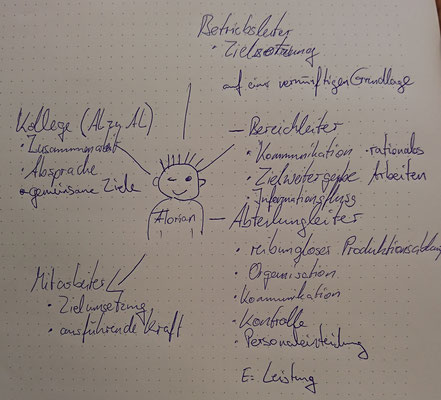 Betriebsleiter
· Zielsetzung
auf einer vernünftigen Grundlage
Kollege (AL zu AL)
· Zusammenarbeit
· Absprache
· gemeinsame Ziele
Florian
- Bereichleiter
· Kommunikation · rationales
· Zielweitergabe Arbeiten
· Informationsfluss
- Abteilungleiter
· reibungsloser Produktionsablauf
· Organisation
· Kommunikation
· Kontrolle
· Personaleinteilung
E: Leistung
Mitarbeiter
· Zielumsetzung
· ausführende Kraft